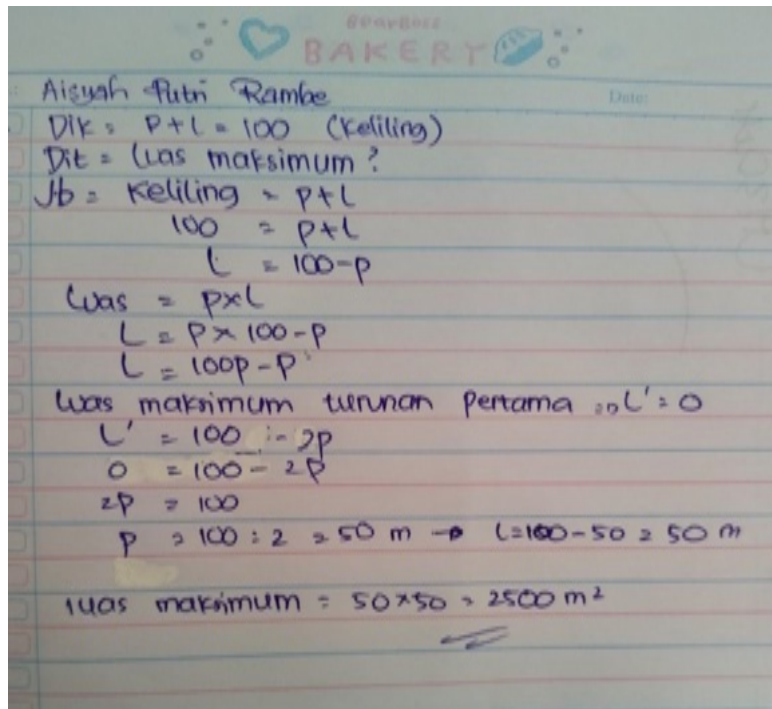 BEARBOSS
BAKERY
Aisyah Putri Rambe
Date:
Dik = P+L = 100 (Keliling)
Dit = Luas maksimum?
Jb = Keliling = p+l
100 = p+l
l = 100-p
Luas = pxl
L = P x 100-p
L = 100p-p
Luas maksimum turunan pertama => L' = 0
L' = 100 - 2p
0 = 100 - 2p
2p = 100
p = 100 : 2 = 50 m → l = 100-50 = 50 m
luas maksimum = 50x50 = 2500 m²